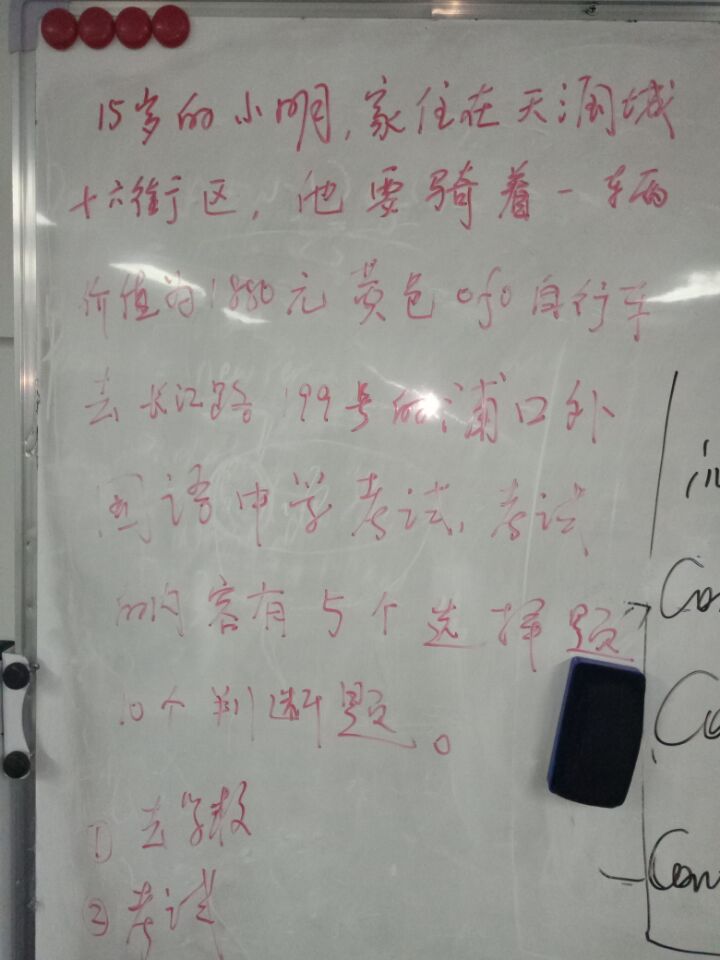 15岁的小明,家住在天润城
十六街区,他要骑着一车两
价值为1880元黄色ofo自行车
去长江路199号的浦口外
国语中学考试,考试
的内容有5个选择题
10个判断题。
①去学校
②考试
in
Con
Co
Com